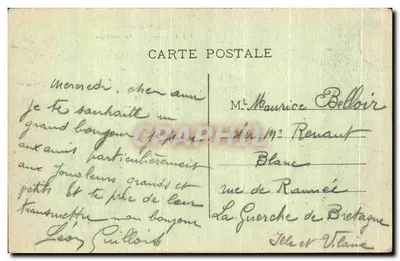 CARTE POSTALE
Mercredi. cher ami
je te souhaite un
grand bonjour
aux amis particulièrement
aux Jongleurs, grands et
petits Et te prie de leur
transmettre mon bonjour
Léon Guillois
Mr Maurice Belloir
Renaut
Blanc
rue de Rannée
La Guerche de Bretagne
Ille et Vilaine